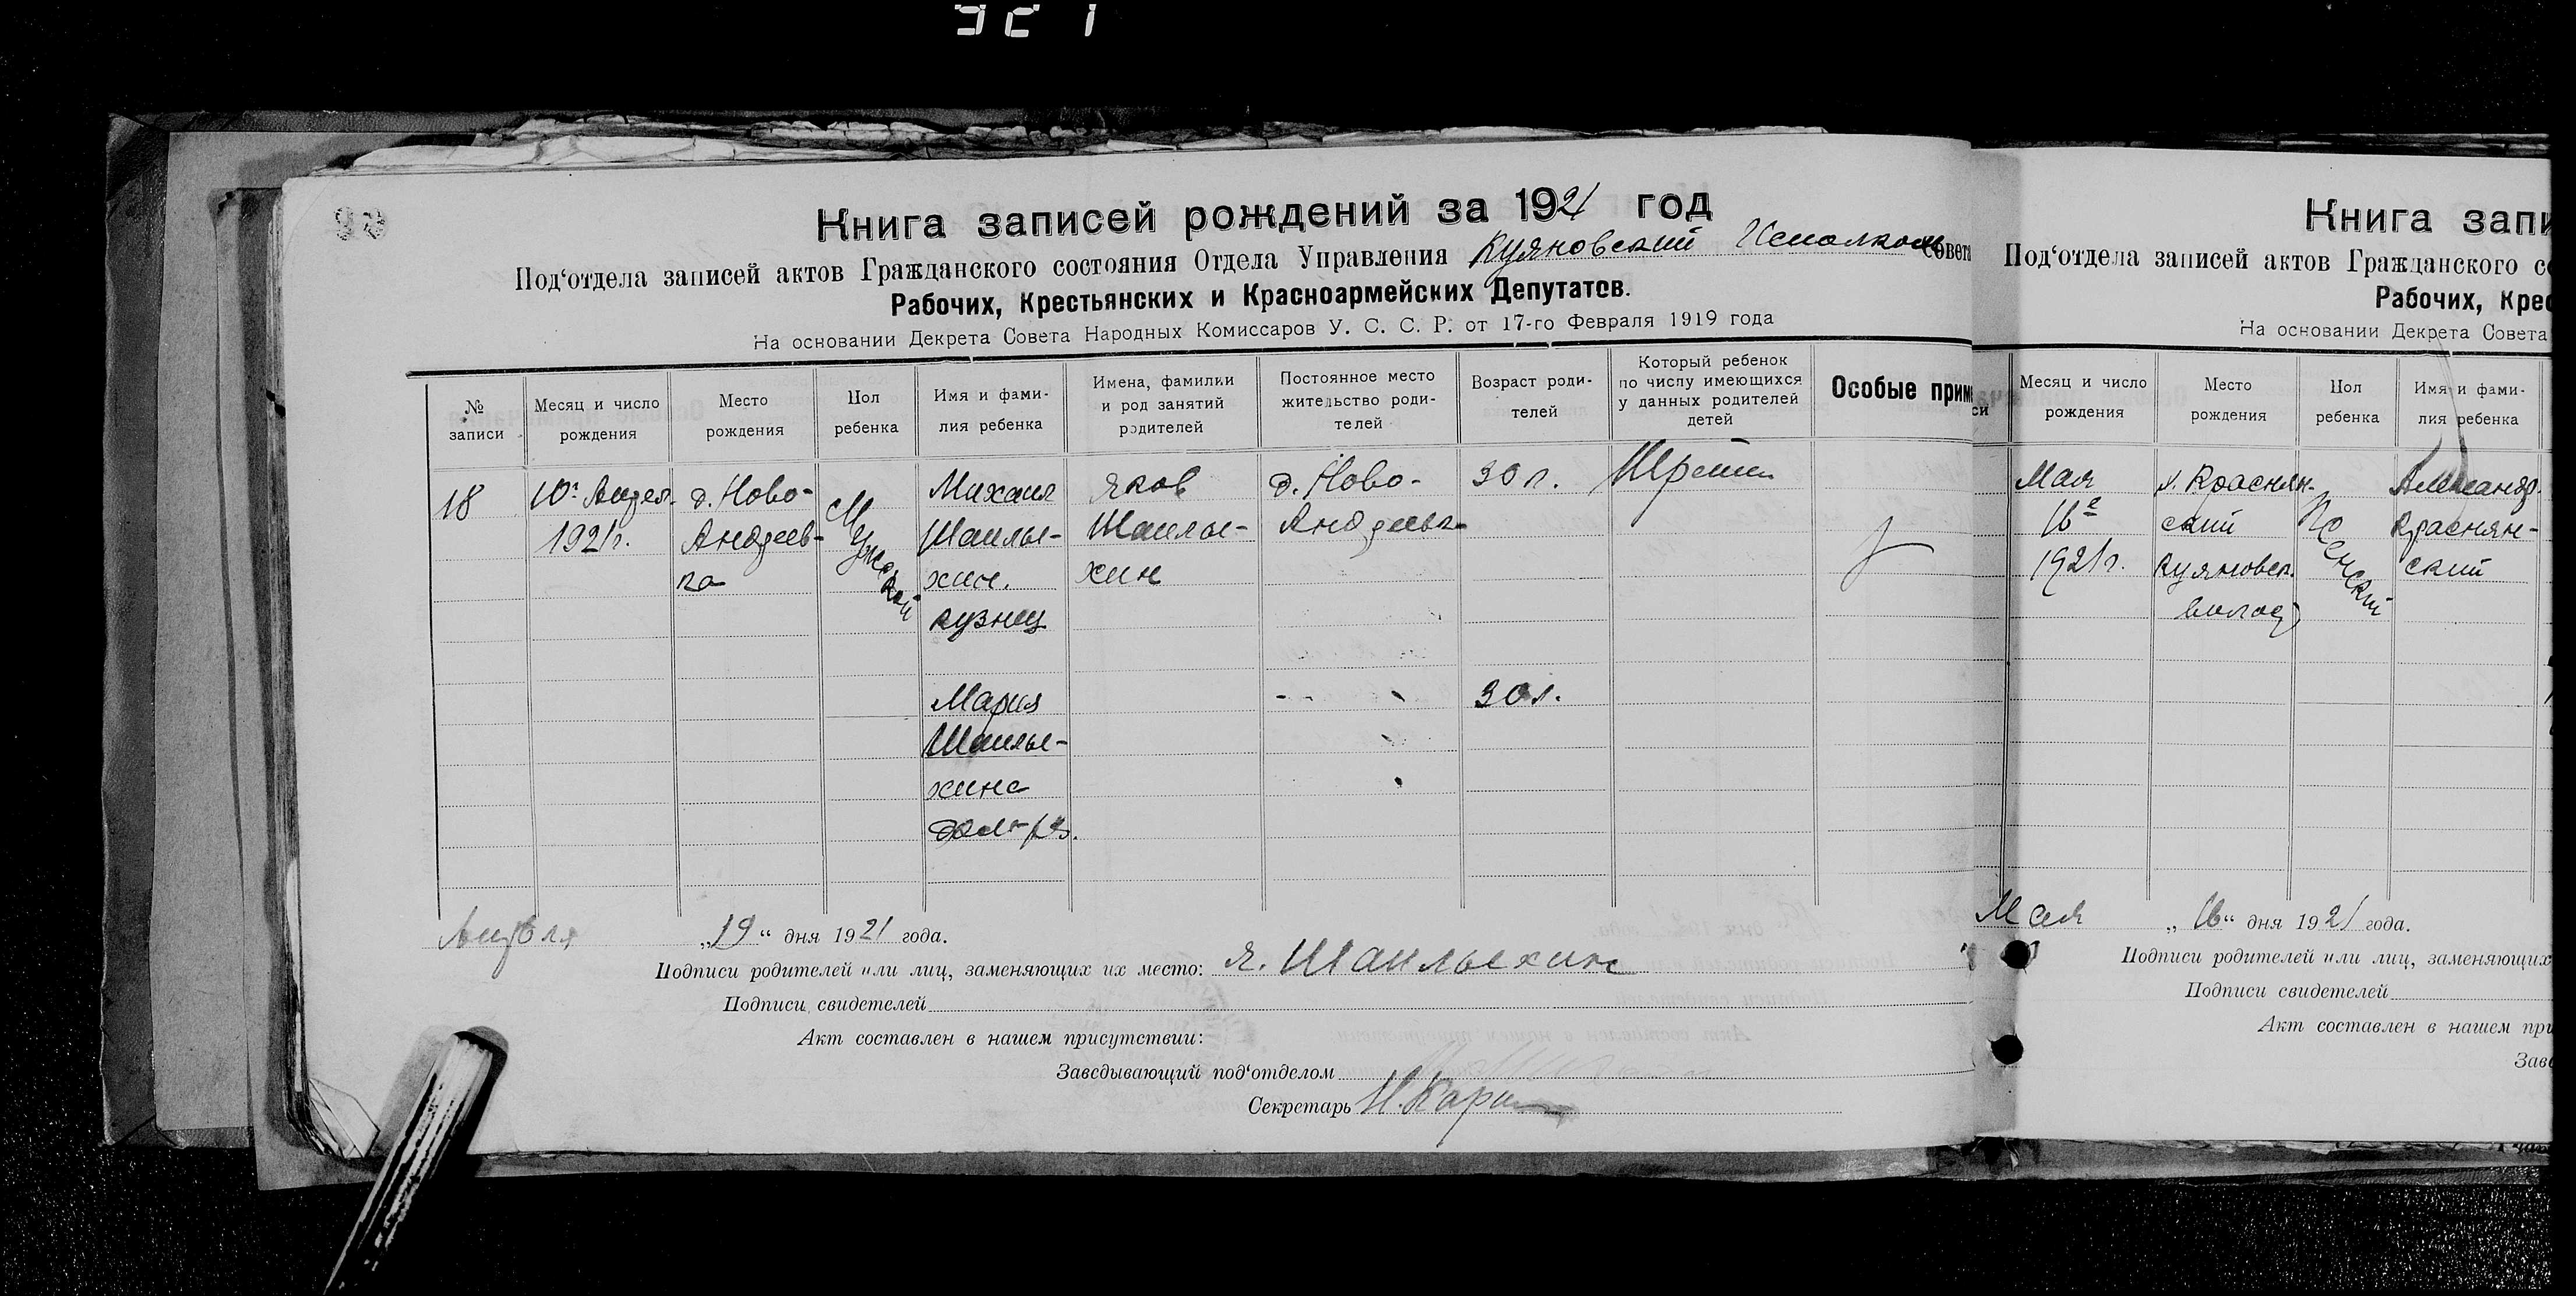 Книга записей рождений за 1921 год
Под'отдела записей актов Гражданского состояния Отдела Управления Куяновский Исполком Совета
Рабочих, Крестьянских и Красноармейских Депутатов.
На основании Декрета Совета Народных Комиссаров У. С. С. Р. от 17-го Февраля 1919 года
№ записи
Месяц и число рождения
Место рождения
Пол ребенка
Имя и фами-
лия ребенка
Имена, фамилии
и род занятий
родителей
Постоянное место
жительство роди-
телей
Возраст роди-
телей
Который ребенок
по числу имеющихся
у данных родителей
детей
Особые приме
18
10го Апрел.
1921 г.
д. Ново-
Андреев-
ка
Мужской
Михаил
хин.
кузнец
Яков
хин
д. Ново-
Андреевк
30 г.
Мария
хина
30 л.
Апреля „19“ дня 1921 года.
Подписи родителей или лиц, заменяющих их место: Я.
Подписи свидетелей
Акт составлен в нашем присутствии:
Заведывающий под'отделом
Секретарь Н.
Книга запи
Под'отдела записей актов Гражданского со
Рабочих, Крес
На основании Декрета Совета
си
Месяц и число
рождения
Место
рождения
Пол
ребенка
Имя и фами-
лия ребенка
Мая
16е
1921 г.
х. Краснян-
ский
Куяновск.
волос
Женский
Александр.
Краснян-
ский
Мая „16“ дня 1921 года.
Подписи родителей или лиц, заменяющих
Подписи свидетелей
Акт составлен в нашем при
Заве